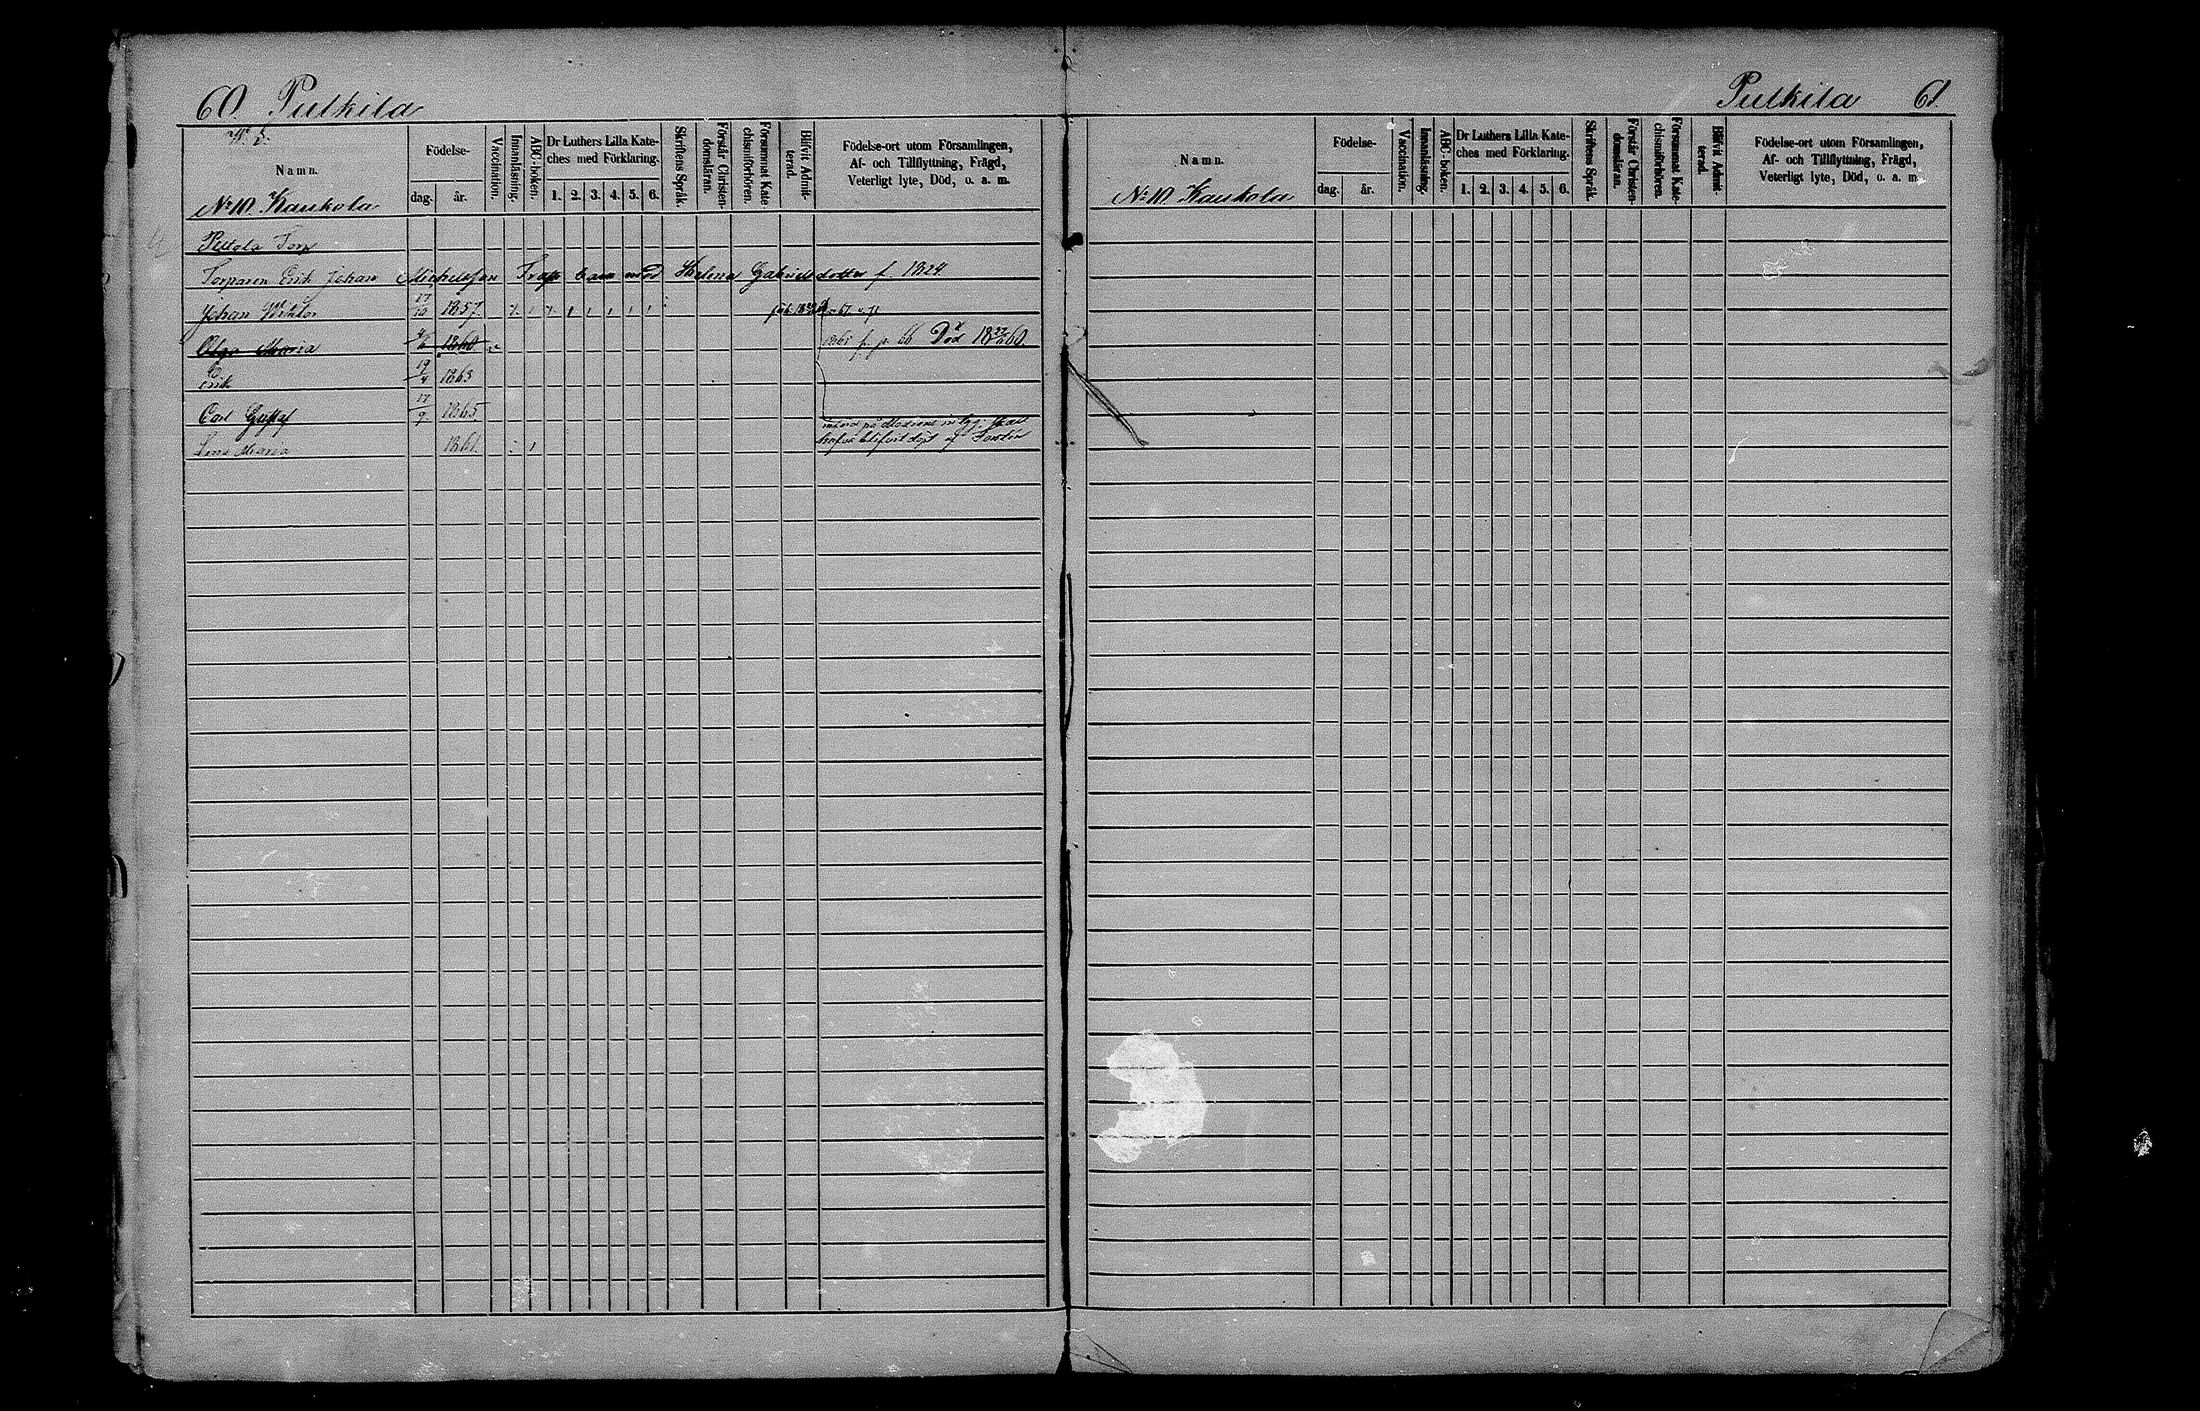 60 Pulkila
Namn.
Födelse-
dag. år.
Vaccination.
Innanläsning.
ABC-boken.
Dr Luthers Lilla Kate-
ches med Förklaring.
1. 2. 3. 4. 5. 6.
Skriftens Språk.
Förstår Christen-
domsläran.
Försummat Kate-
chismiförhören.
Blifvit Admit-
terad.
Födelse-ort utom Församlingen,
Af- och Tillflyttning, Frägd,
Veterligt lyte, Död, o. a. m.
No 10. Kaukola
Torparen Erik Johan Michelsson barn med Helena Gabrielsdotter f. 1824
Johan Wiktor 17/10 1857
Olga Maria 4/6 1860 Död 60
Erik 19/4 1863
Carl Gustaf 17/9 1865
Lena Maria 1861
Pulkila 61
Namn.
Födelse-
dag. år.
Vaccination.
Innanläsning.
ABC-boken.
Dr Luthers Lilla Kate-
ches med Förklaring.
1. 2. 3. 4. 5. 6.
Skriftens Språk.
Förstår Christen-
domsläran.
Försummat Kate-
chismiförhören.
Blifvit Admit-
terad.
Födelse-ort utom Församlingen,
Af- och Tillflyttning, Frägd,
Veterligt lyte, Död, o. a. m.
No 10. Kaukola